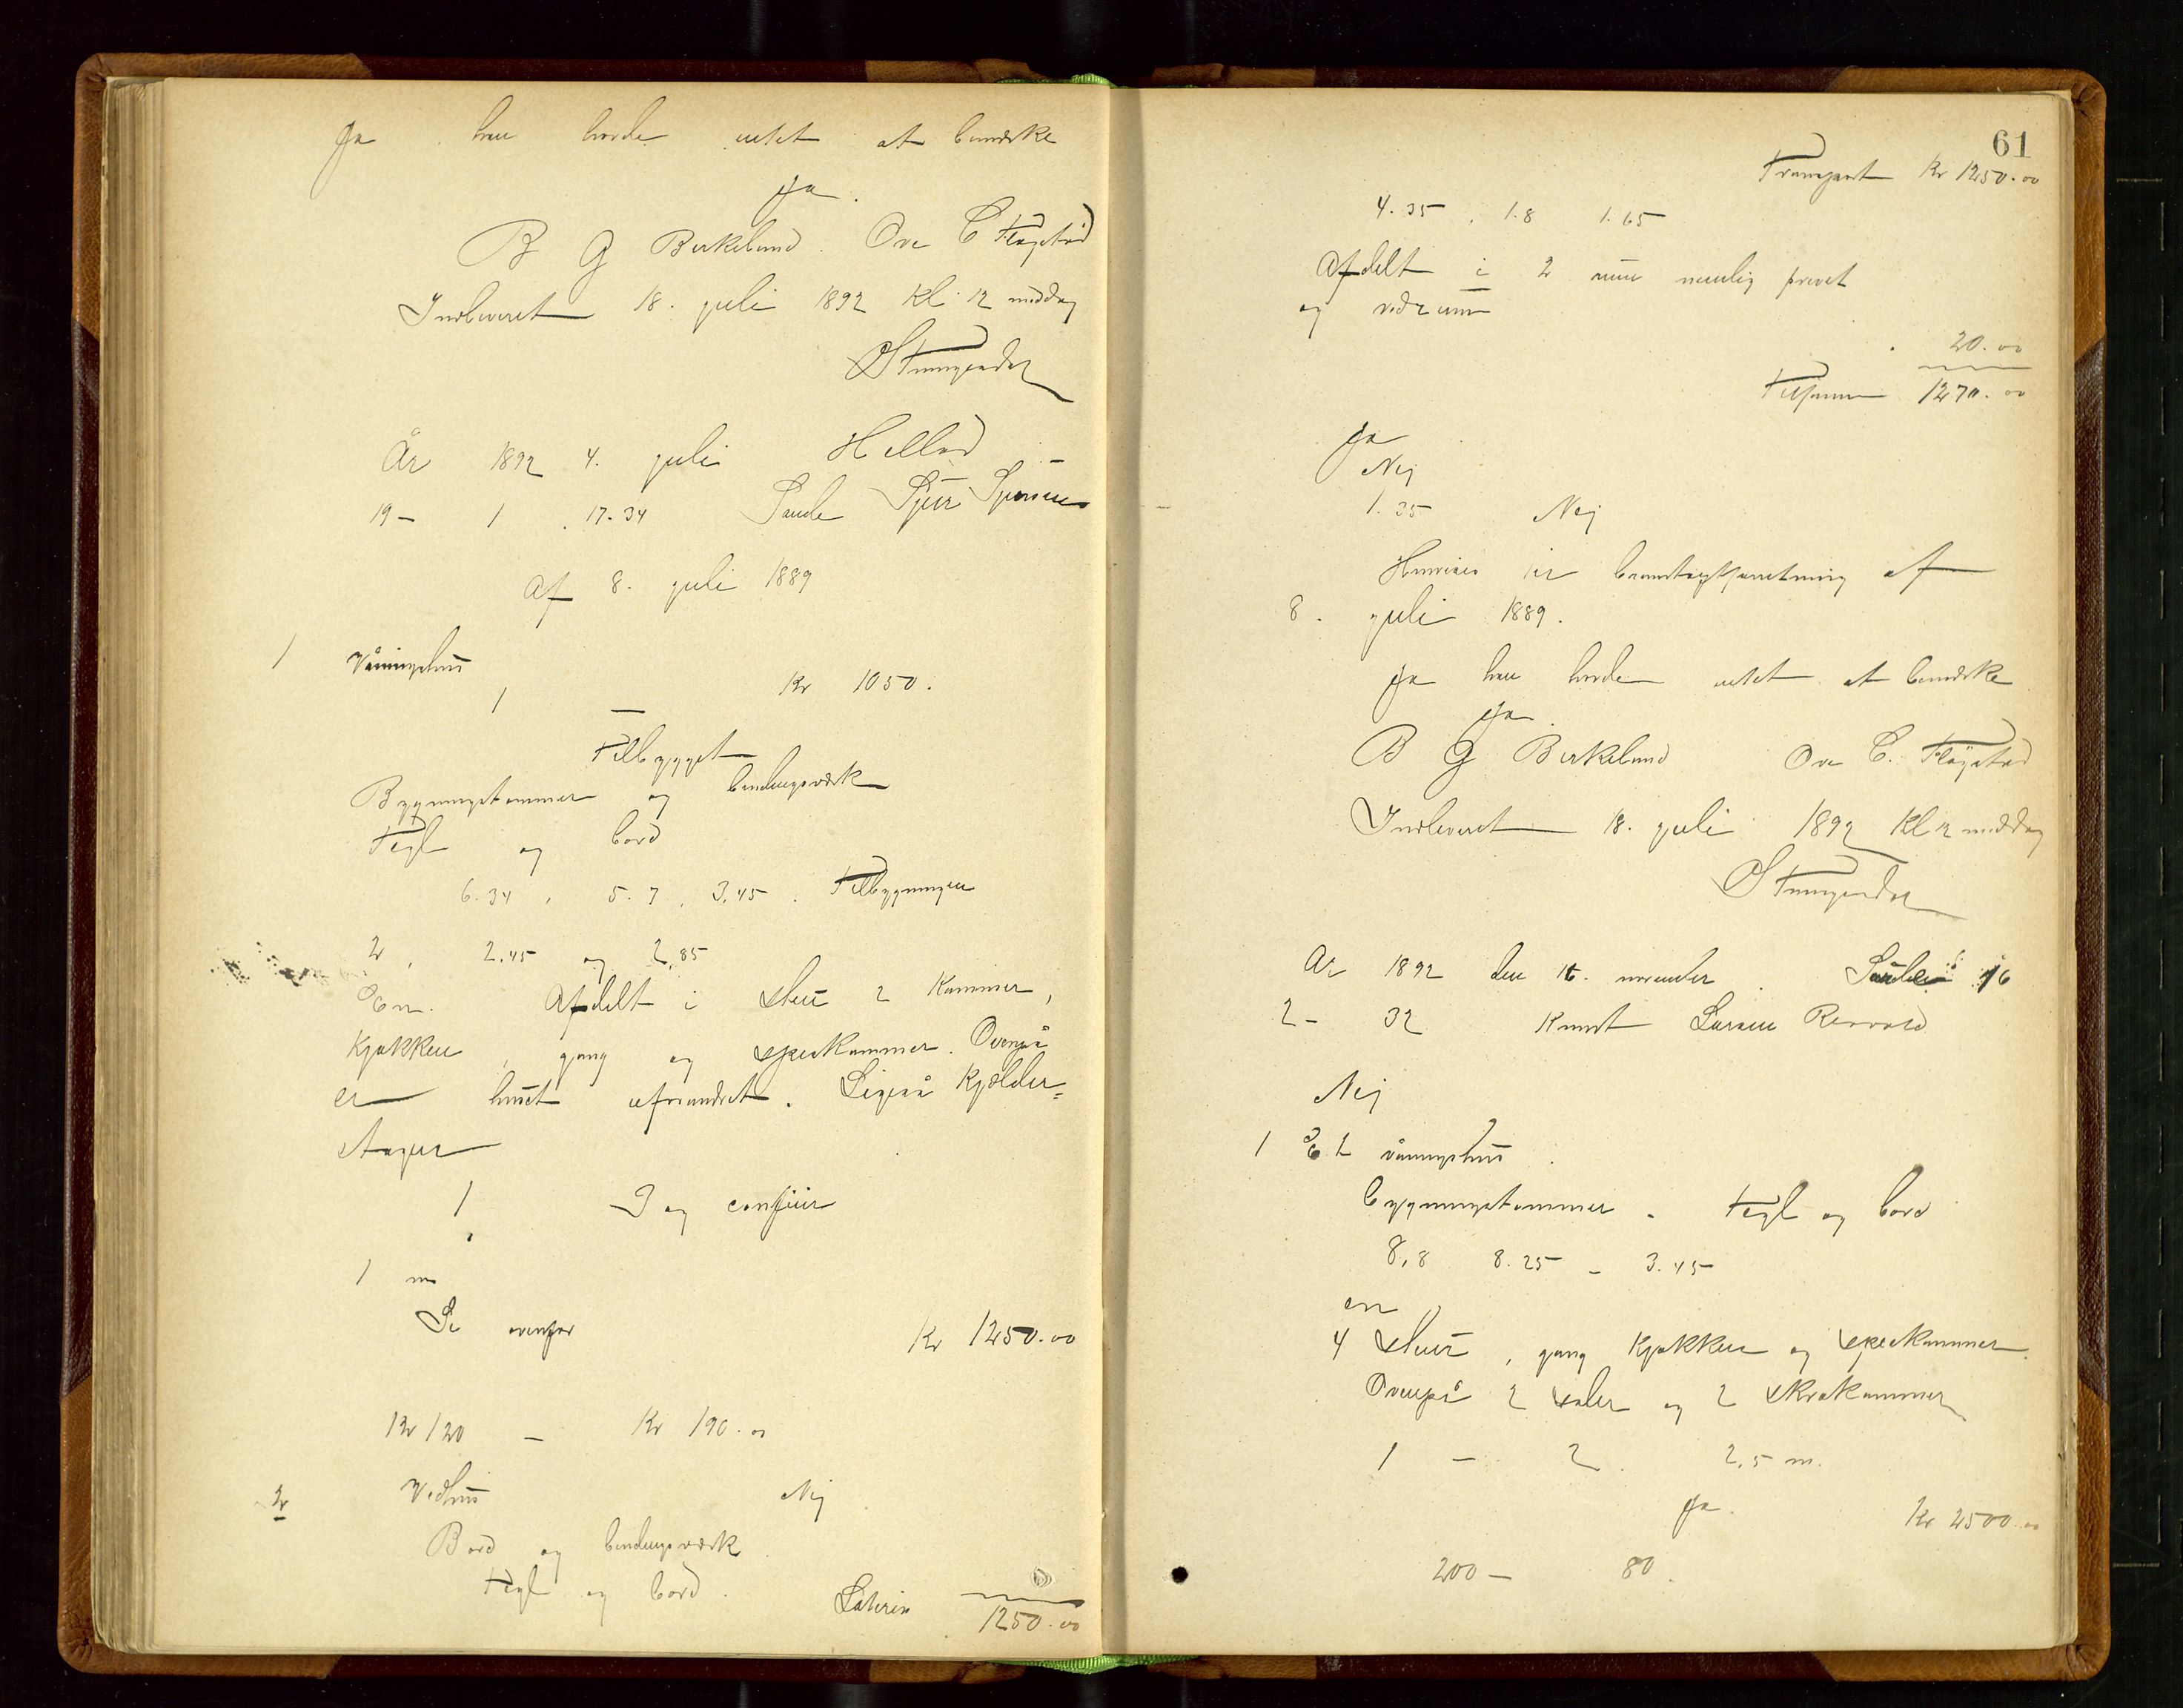 Ja han havde intet at bemærke
Ja.
B G Birkeland. Ove C Fløgstad
Indleveret 18. juli 1892 kl. 12 middag
År 1892 4. juli Helland
19 – 1 . 17.34 Sande Sjur Sjursen
Af 8. juli 1889
1 Våningshus
1 — Kr 1050.
Tilbygget
Bygningstømmer og bindingsværk
Tegl og bord
6.34 , 5.7 , 3.45 . Tilbygningen
2 , 2.45 og 2,85
En. Afdelt i stue 2 kammer,
kjøkken, gang og spiskammer. Ovenpå
er huset uforandret. Ligeså kjelder-
etager
1 og comfur
1 m
Se ovenfor Kr 1250.00
Kr 120 – Kr 190.00
2 Vedhus Nej
Bord og bindingsværk
Tegl og bord.
Lateris 1250.00
61
Transport Kr 1250.00
4.35 . 1.8 1.65
Afdelt i 2 rum nemlig privet
og vedrum
20.00
Tilsammen 1270.00
Ja
Nej
1.35 Nej
Henvises til branntaxtforretning af
8. juli 1889.
Ja han havde intet at bemærke
Ja.
B G Birkeland Ove C. Fløgstad
Indleveret 18. juli 1892 Kl 12 middag
År 1892 den 16. november . Sande 16
2 – 32 Knut Larsen
Nej
1 Et våningshus.
bygningstømmer – Tegl og bord
8,8 8.25 – 3.45
en
4 stuer, gang kjøkken og spiskammer.
Ovenpå 2 saler og 2 skråkammer
1 – 2 . 2,5 m.
Ja. Kr 2500.00
200 – 80.